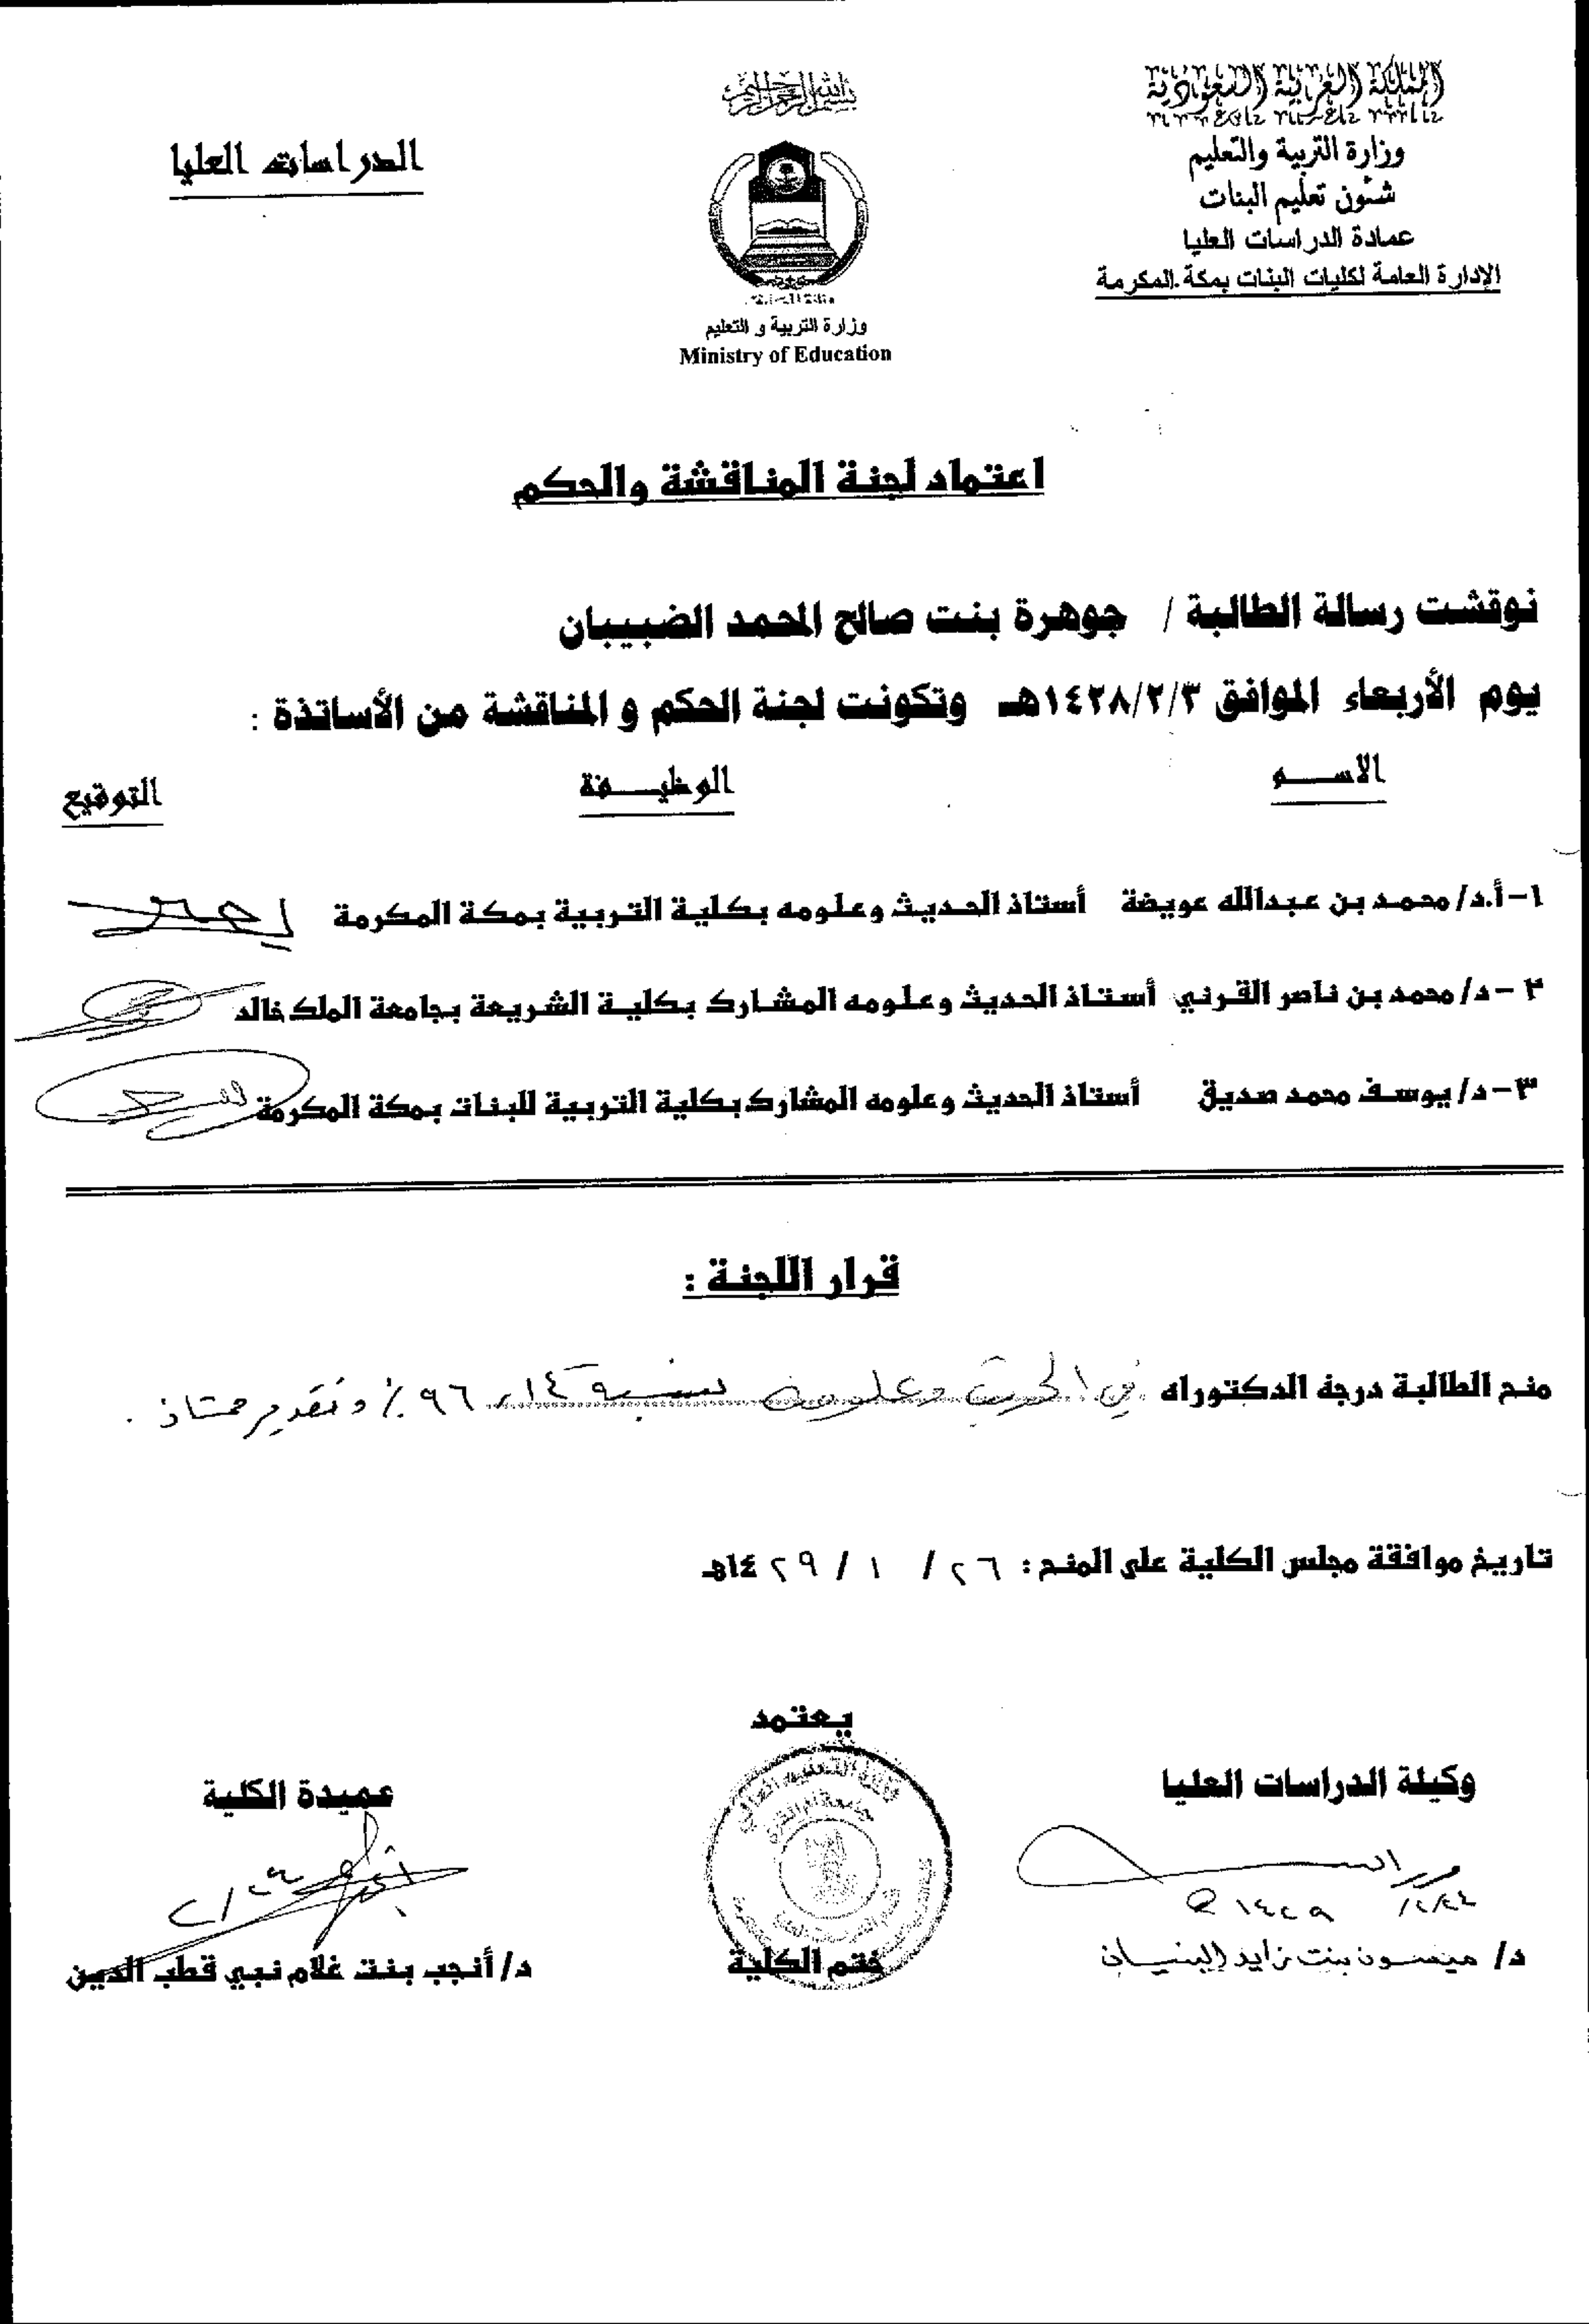 المملكة العربية السعودية
وزارة التربية والتعليم
شئون تعليم البنات
عمادة الدراسات العليا
الإدارة العامة لكليات البنات بمكة المكرمة
بسم الله الرحمن الرحيم
وزارة التربية و التعليم
Ministry of Education
الدراسات العليا
اعتماد لجنة المناقشة والحكم
نوقشت رسالة الطالبة / جوهرة بنت صالح المحمد الضبيبان
يوم الأربعاء الموافق ١٤٢٨/٢/٣هـ وتكونت لجنة الحكم و المناقشة من الأساتذة :
الاســـم الوظيـــفة التوقيع
١- أ.د/ محمد بن عبدالله عويضة أستاذ الحديث وعلومه بكلية التربية بمكة المكرمة
٢ - د/ محمد بن ناصر القرني أستاذ الحديث وعلومه المشارك بكلية الشريعة بجامعة الملك خالد
٣- د/ يوسف محمد صديق أستاذ الحديث وعلومه المشارك بكلية التربية للبنات بمكة المكرمة
قرار اللجنة :
منح الطالبة درجة الدكتوراه في الحديث وعلومه بنسبة ٩٦٪ وتقدير ممتاز .
تاريخ موافقة مجلس الكلية على المنح : ٢٦ / ١ / ١٤٢٩هـ
يعتمد
وكيلة الدراسات العليا
عميدة الكلية
ختم الكلية
د/ ميسون بنت زايد البنيان
د/ أنجب بنت غلام نبي قطب الدين